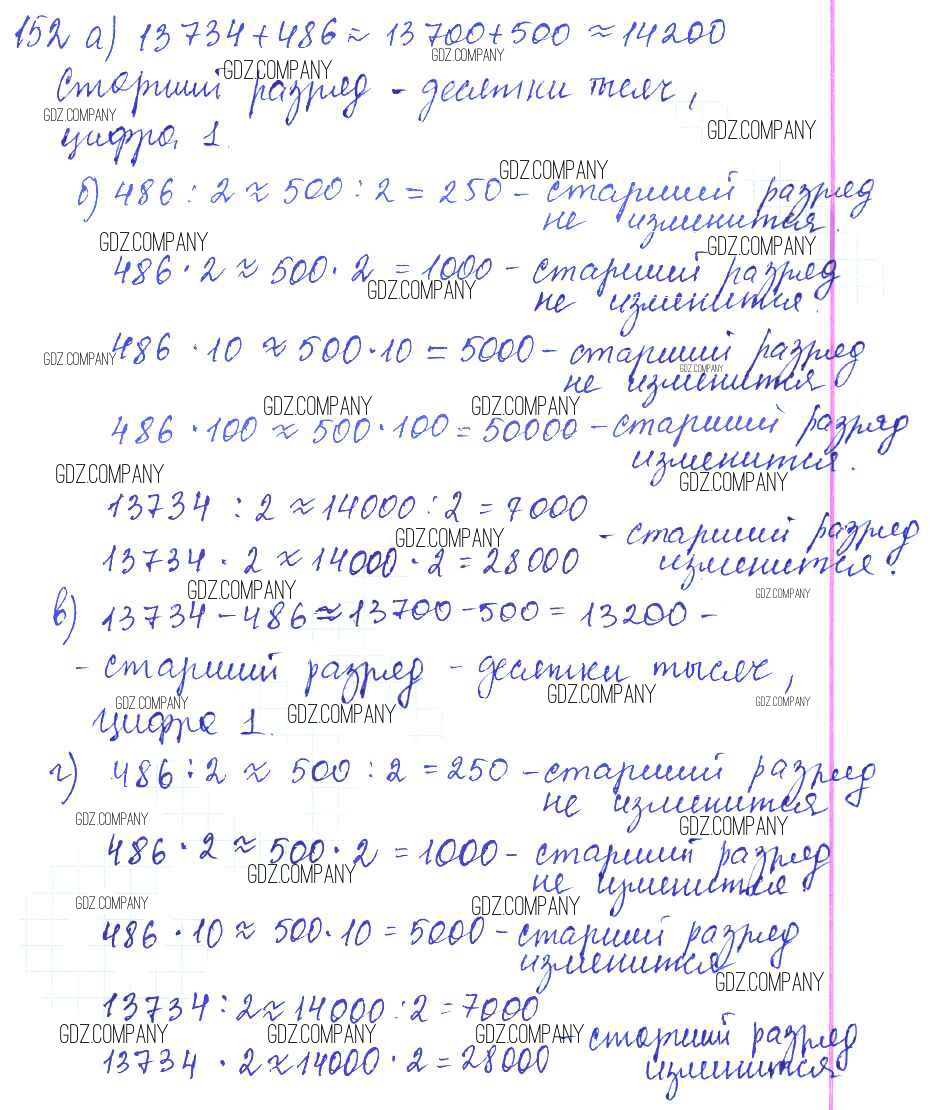 152 а) 13734 + 486 ≈ 13700 + 500 ≈ 14200
GDZ.COMPANY
GDZ.COMPANY
Старший разряд - десятки тысяч,
GDZ.COMPANY
цифра 1.
GDZ.COMPANY
GDZ.COMPANY
б) 486 : 2 ≈ 500 : 2 = 250 - старший разряд
не изменится.
GDZ.COMPANY
GDZ.COMPANY
486 · 2 ≈ 500 · 2 = 1000 - старший разряд
GDZ.COMPANY
не изменится.
486 · 10 ≈ 500 · 10 = 5000 - старший разряд
GDZ.COMPANY
GDZ.COMPANY
не изменится
GDZ.COMPANY GDZ.COMPANY
486 · 100 ≈ 500 · 100 = 50000 - старший разряд
изменится.
GDZ.COMPANY
GDZ.COMPANY
13734 : 2 ≈ 14000 : 2 = 7000
GDZ.COMPANY
- старший разряд
13734 · 2 ≈ 14000 · 2 = 28000
изменится.
GDZ.COMPANY
GDZ.COMPANY
в) 13734 - 486 ≈ 13700 - 500 = 13200 -
- старший разряд - десятки тысяч,
GDZ.COMPANY
GDZ.COMPANY
GDZ.COMPANY
GDZ.COMPANY
цифра 1.
г) 486 : 2 ≈ 500 : 2 = 250 - старший разряд
не изменится
GDZ.COMPANY
GDZ.COMPANY
486 · 2 ≈ 500 · 2 = 1000 - старший разряд
GDZ.COMPANY
не изменится
GDZ.COMPANY
GDZ.COMPANY
486 · 10 ≈ 500 · 10 = 5000 - старший разряд
изменится
GDZ.COMPANY
13734 : 2 ≈ 14000 : 2 = 7000
GDZ.COMPANY GDZ.COMPANY GDZ.COMPANY
- старший разряд
13734 · 2 ≈ 14000 · 2 = 28000
изменится